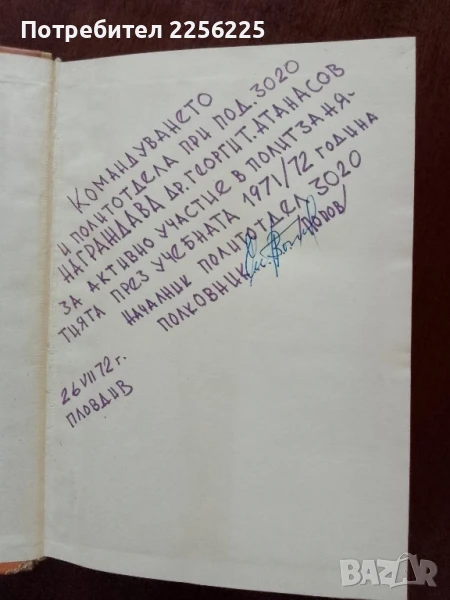 Потребител 2256275
КОМАНДУВАНЕТО
И ПОЛИТОТДЕЛА ПРИ ПОД. 3020
НАГРАЖДАВА ДР. ГЕОРГИ Т. АТАНАСОВ
ЗА АКТИВНО УЧАСТИЕ В ПОЛИТЗАНЯ-
ТИЯТА ПРЕЗ УЧЕБНАТА 1971/72 ГОДИНА
НАЧАЛНИК ПОЛИТОТДЕЛ 3020
ПОЛКОВНИК /ПОПОВ/
26 VII 72 г.
ПЛОВДИВ
BAZAR.bg